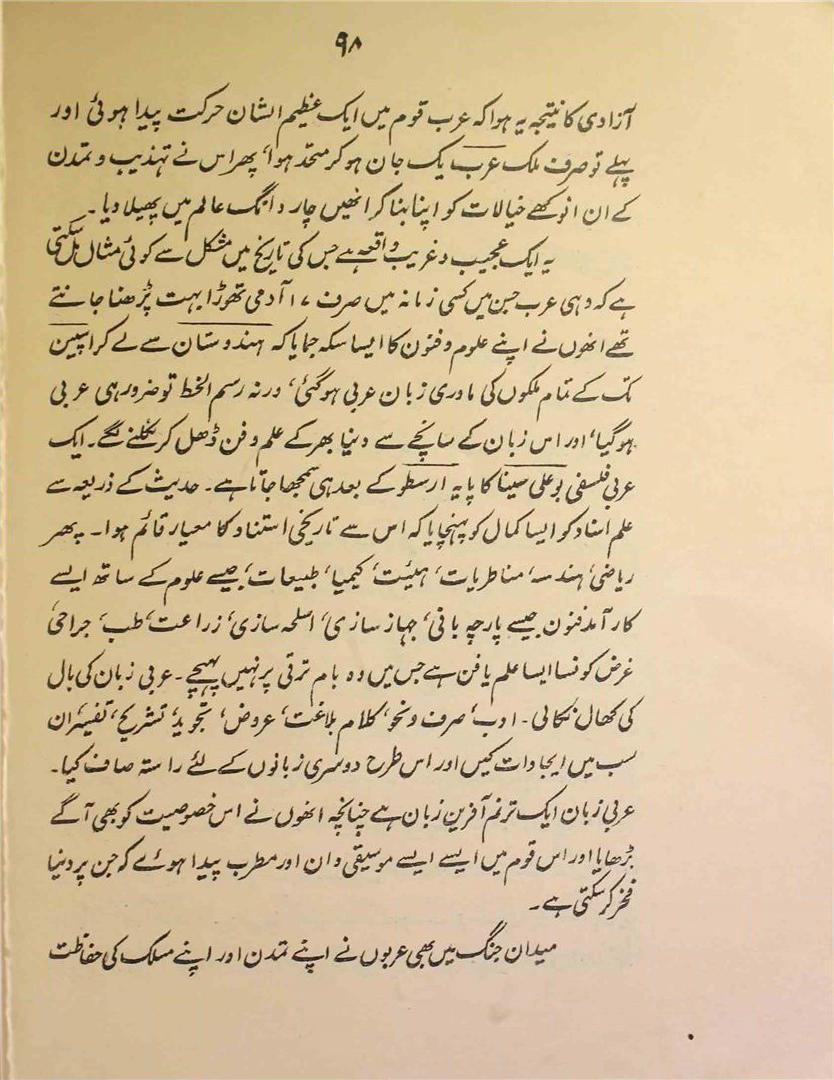 ۹۸
آزادی کا نتیجہ یہ ہوا کہ عرب قوم میں ایک عظیم الشان حرکت پیدا ہوئی اور
پہلے تو صرف ملک عرب یک جان ہو کر متحد ہوا، پھر اس نے تہذیب و تمدن
کے ان انوکھے خیالات کو اپنا بنا کر انھیں چار دانگ عالم میں پھیلا دیا۔
یہ ایک عجیب و غریب واقعہ ہے جس کی تاریخ میں مشکل سے کوئی مثال مل سکتی
ہے کہ وہی عرب جن میں کسی زمانہ میں صرف ۱۷ آدمی تھوڑا بہت پڑھنا جانتے
تھے انھوں نے اپنے علوم و فنون کا ایسا سکہ جمایا کہ ہندوستان سے لے کر اسپین
تک کے تمام ملکوں کی مادری زبان عربی ہوگئی، ورنہ رسم الخط تو ضرور ہی عربی
ہوگیا، اور اس زبان کے سانچے سے دنیا بھر کے علم و فن ڈھل کر نکلنے لگے۔ ایک
عربی فلسفی بو علی سینا کا پایہ ارسطو کے بعد ہی سمجھا جاتا ہے۔ حدیث کے ذریعہ سے
علم اسناد کو ایسا کمال کو پہنچایا کہ اس سے تاریخی استناد کا معیار قائم ہوا۔ پھر
ریاضی، ہندسہ، مناظریات، ہیئت، کیمیا، طبیعات، جیسے علوم کے ساتھ ایسے
کارآمد فنون جیسے پارچہ بافی، جہاز سازی، اسلحہ سازی، زراعت، طب، جراحی،
غرض کونسا ایسا علم یا فن ہے جس میں وہ بام ترقی پر نہیں پہنچے۔ عربی زبان کی بال
کی کھال نکالی۔ ادب، صرف و نحو، کلام بلاغت، عروض، تجوید، تشریح، تفسیر، ان
سب میں ایجادات کیں اور اس طرح دوسری زبانوں کے لئے راستہ صاف کیا۔
عربی زبان ایک ترنم آفرین زبان ہے چنانچہ انھوں نے اس خصوصیت کو بھی آگے
بڑھایا اور اس قوم میں ایسے ایسے موسیقی دان اور مطرب پیدا ہوئے کہ جن پر دنیا
فخر کر سکتی ہے۔
میدان جنگ میں بھی عربوں نے اپنے تمدن اور اپنے مسلک کی حفاظت